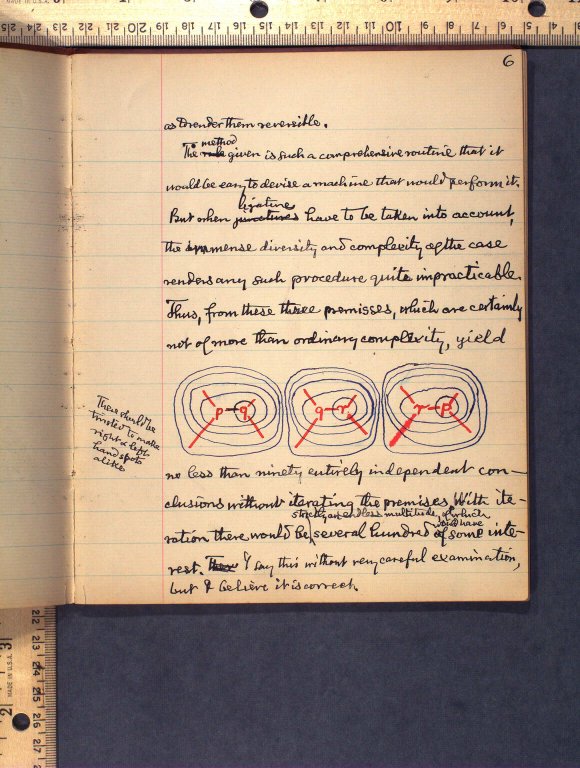 6
as to render them reversible.
method
The rule given is such a comprehensive routine that it
would be easy to devise a machine that would perform it.
ligatures
But when junctures have to be taken into account,
the immense diversity and complexity of the case
renders any such procedure quite impracticable.
Thus, from these three premisses, which are certainly
not of more than ordinary complexity, yield
p q q r r p
There should be
twisted to make
right & left
hand spots
alike
no less than ninety entirely independent con-
clusions without iterating the premises. With ite-
strictly an endless multitude of which
would have
ration there would be several hundred of some inte-
rest. I say this without very careful examination,
but I believe it is correct.